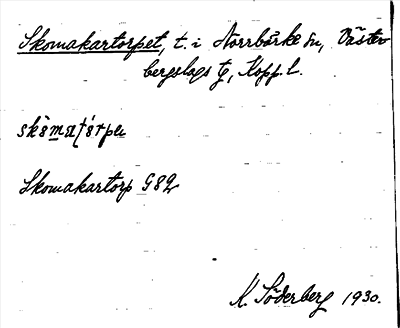 Skomakartorpet, t. i Norrbärke sn, Väster
bergslags tg, Kopp. l.
Skomakartorp G82
K. Söderberg 1930.